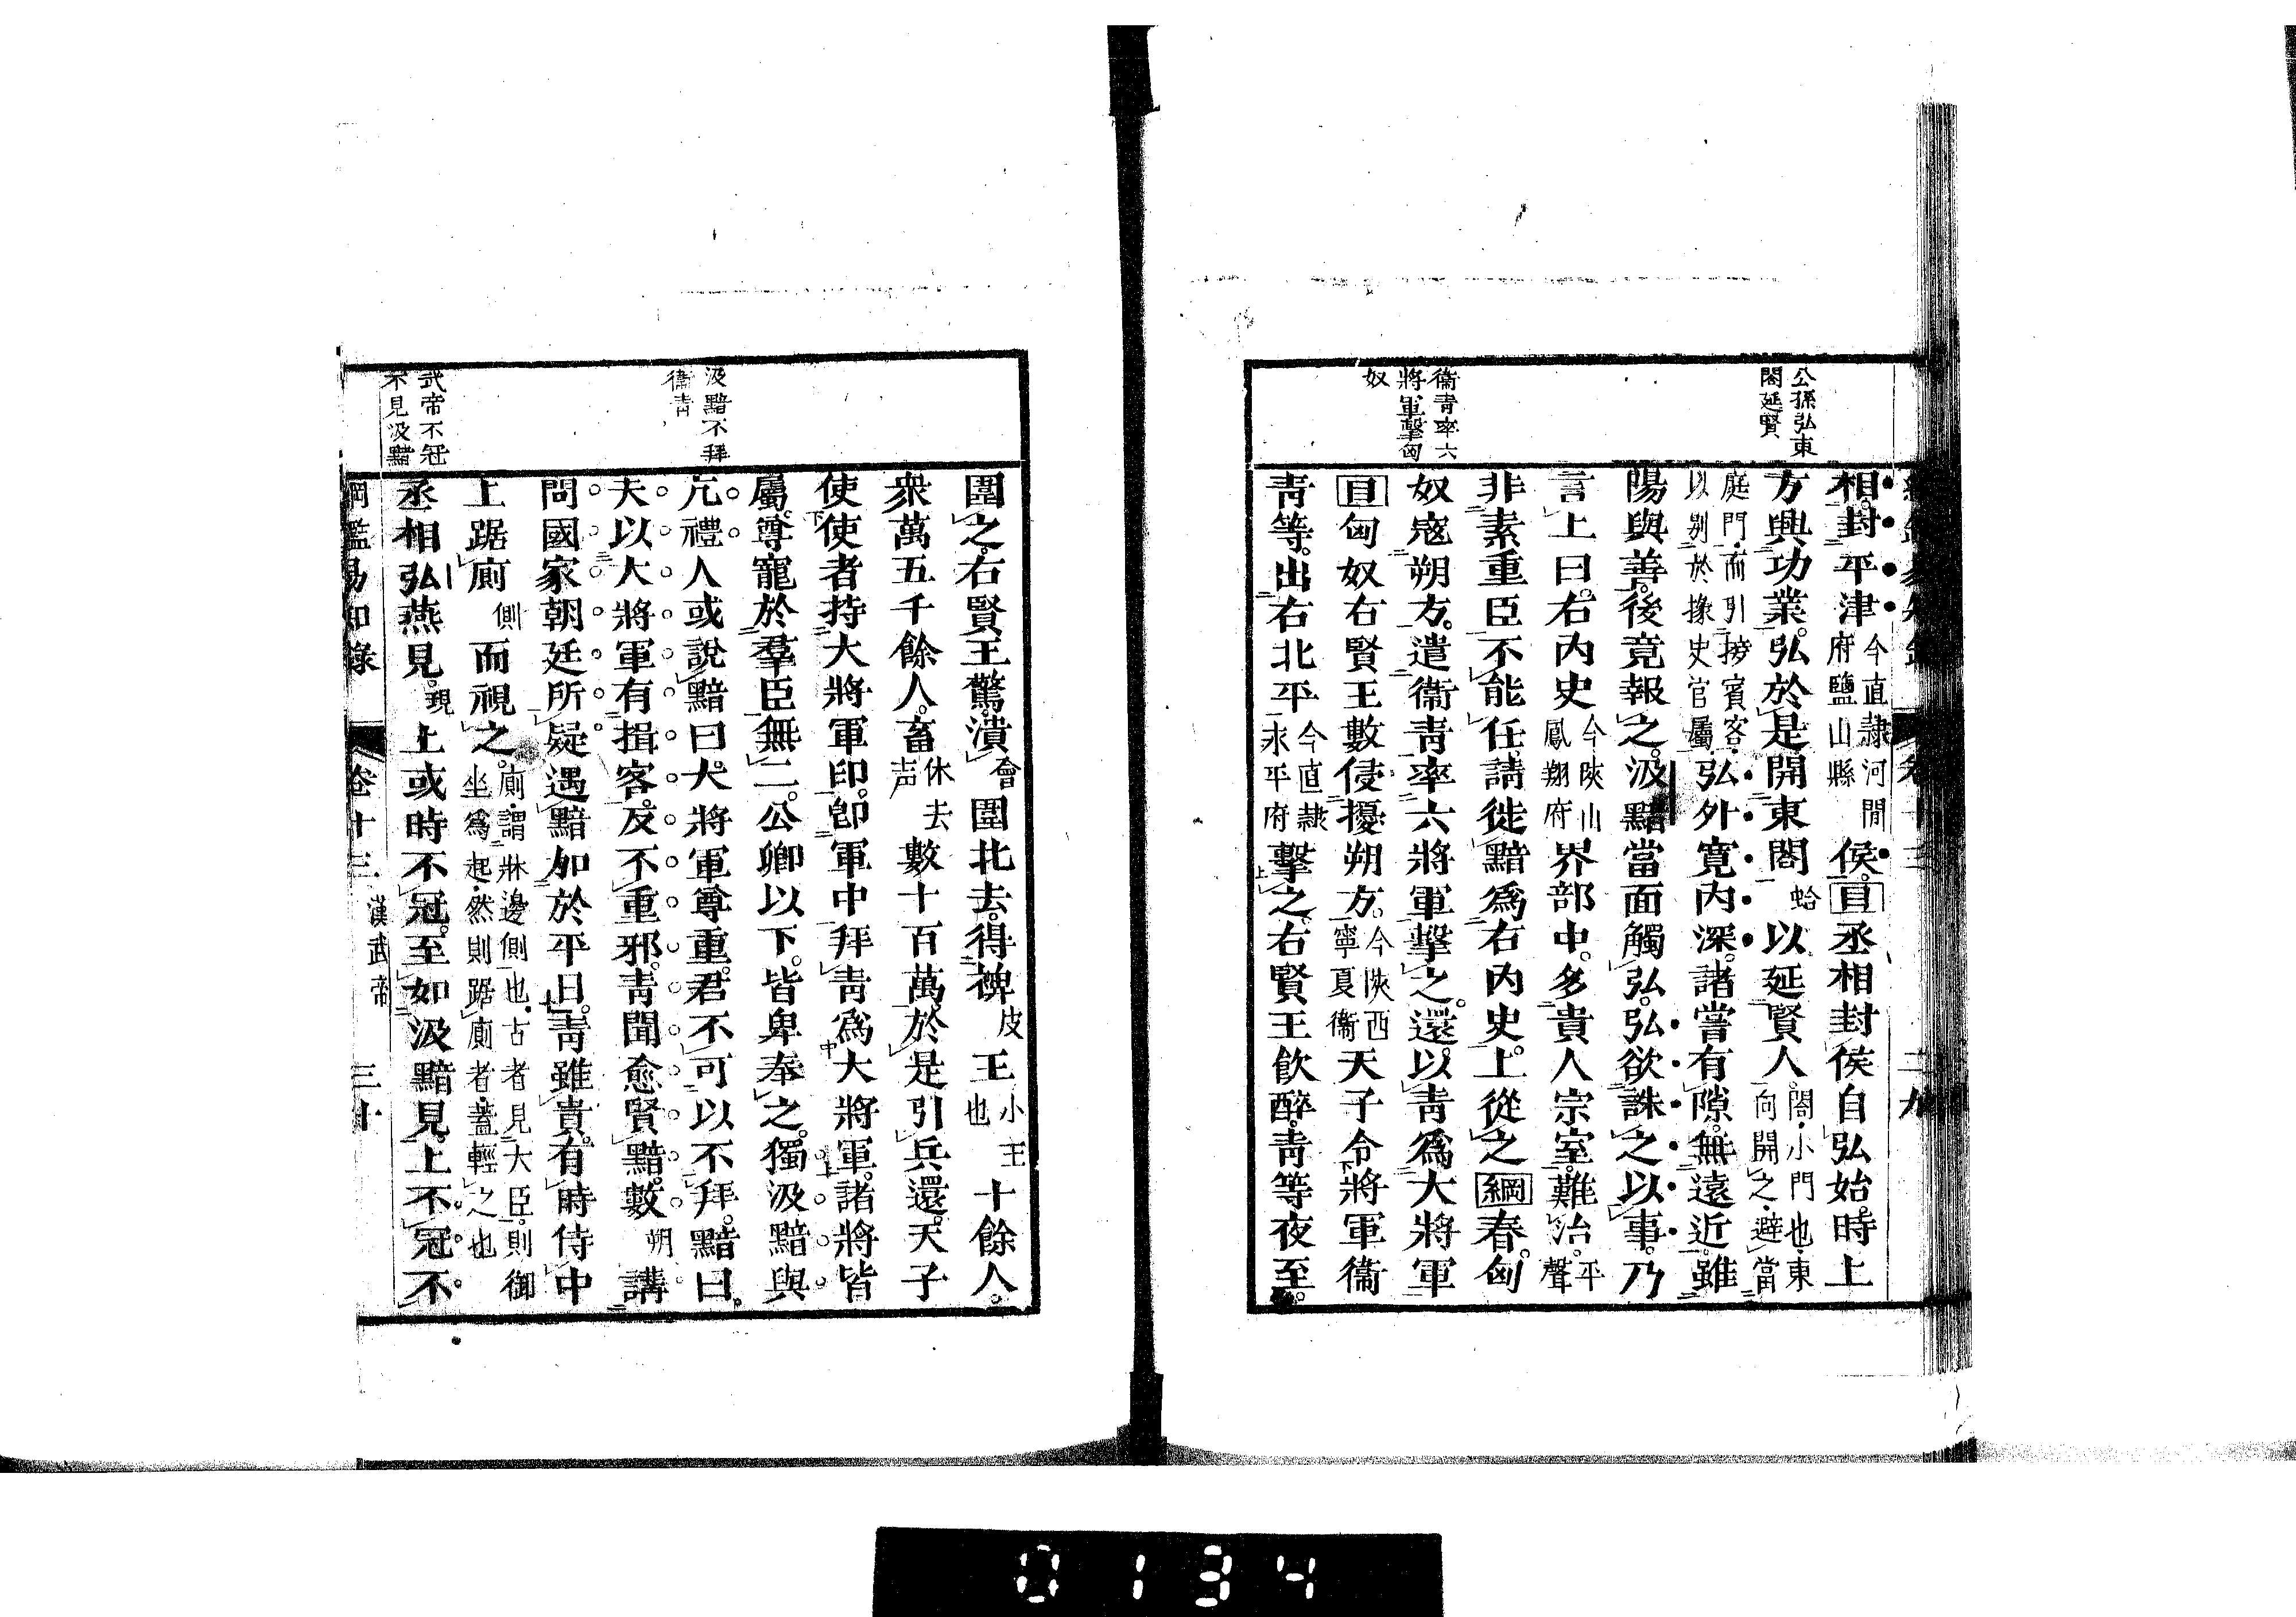 公孫弘東
閣延賢
衞青率六
將軍擊匈
奴
相封平津今直隸河間府鹽山縣侯目丞相封侯自弘始時上
方興功業弘於是開東閤蛤以延賢人閤小門也東向開之避當
庭門而引搒賓客以別於掾史官屬弘外寬內深諸嘗有隙無遠近雖
陽與善後竟報之汲黯當面觸弘弘欲誅之以事乃
言上曰右內史今陝山鳳翔府界部中多貴人宗室難治平聲
非素重臣不能任請徙黯爲右內史上從之綱春匈
奴寇朔方遣衞青率六將軍擊之還以青爲大將軍
目匈奴右賢王數侵擾朔方今陝西寧夏衞天子令將軍衞
青等出右北平今直隸永平府擊之右賢王飲醉青等夜至
汲黯不拜
衞青
武帝不冠
不見汲黯
圍之右賢王驚潰會圍北去得裨皮王小王也十餘人
衆萬五千餘人畜休去声數十百萬於是引兵還天子
使使者持大將軍印卽軍中拜青爲大將軍諸將皆
屬尊寵於羣臣無二公卿以下皆卑奉之獨汲黯與
亢禮人或說黯曰大將軍尊重君不可以不拜黯曰
夫以大將軍有揖客反不重邪青聞愈賢黯數朔講
問國家朝廷所疑遇黯加於平日青雖貴有時侍中
上踞廁側而視之廁謂牀邊側也古者見大臣則御坐爲起然則踞廁者蓋輕之也
丞相弘燕見現上或時不冠至如汲黯見上不冠不
綱鑑易知錄 卷十三 漢武帝 三十
0134